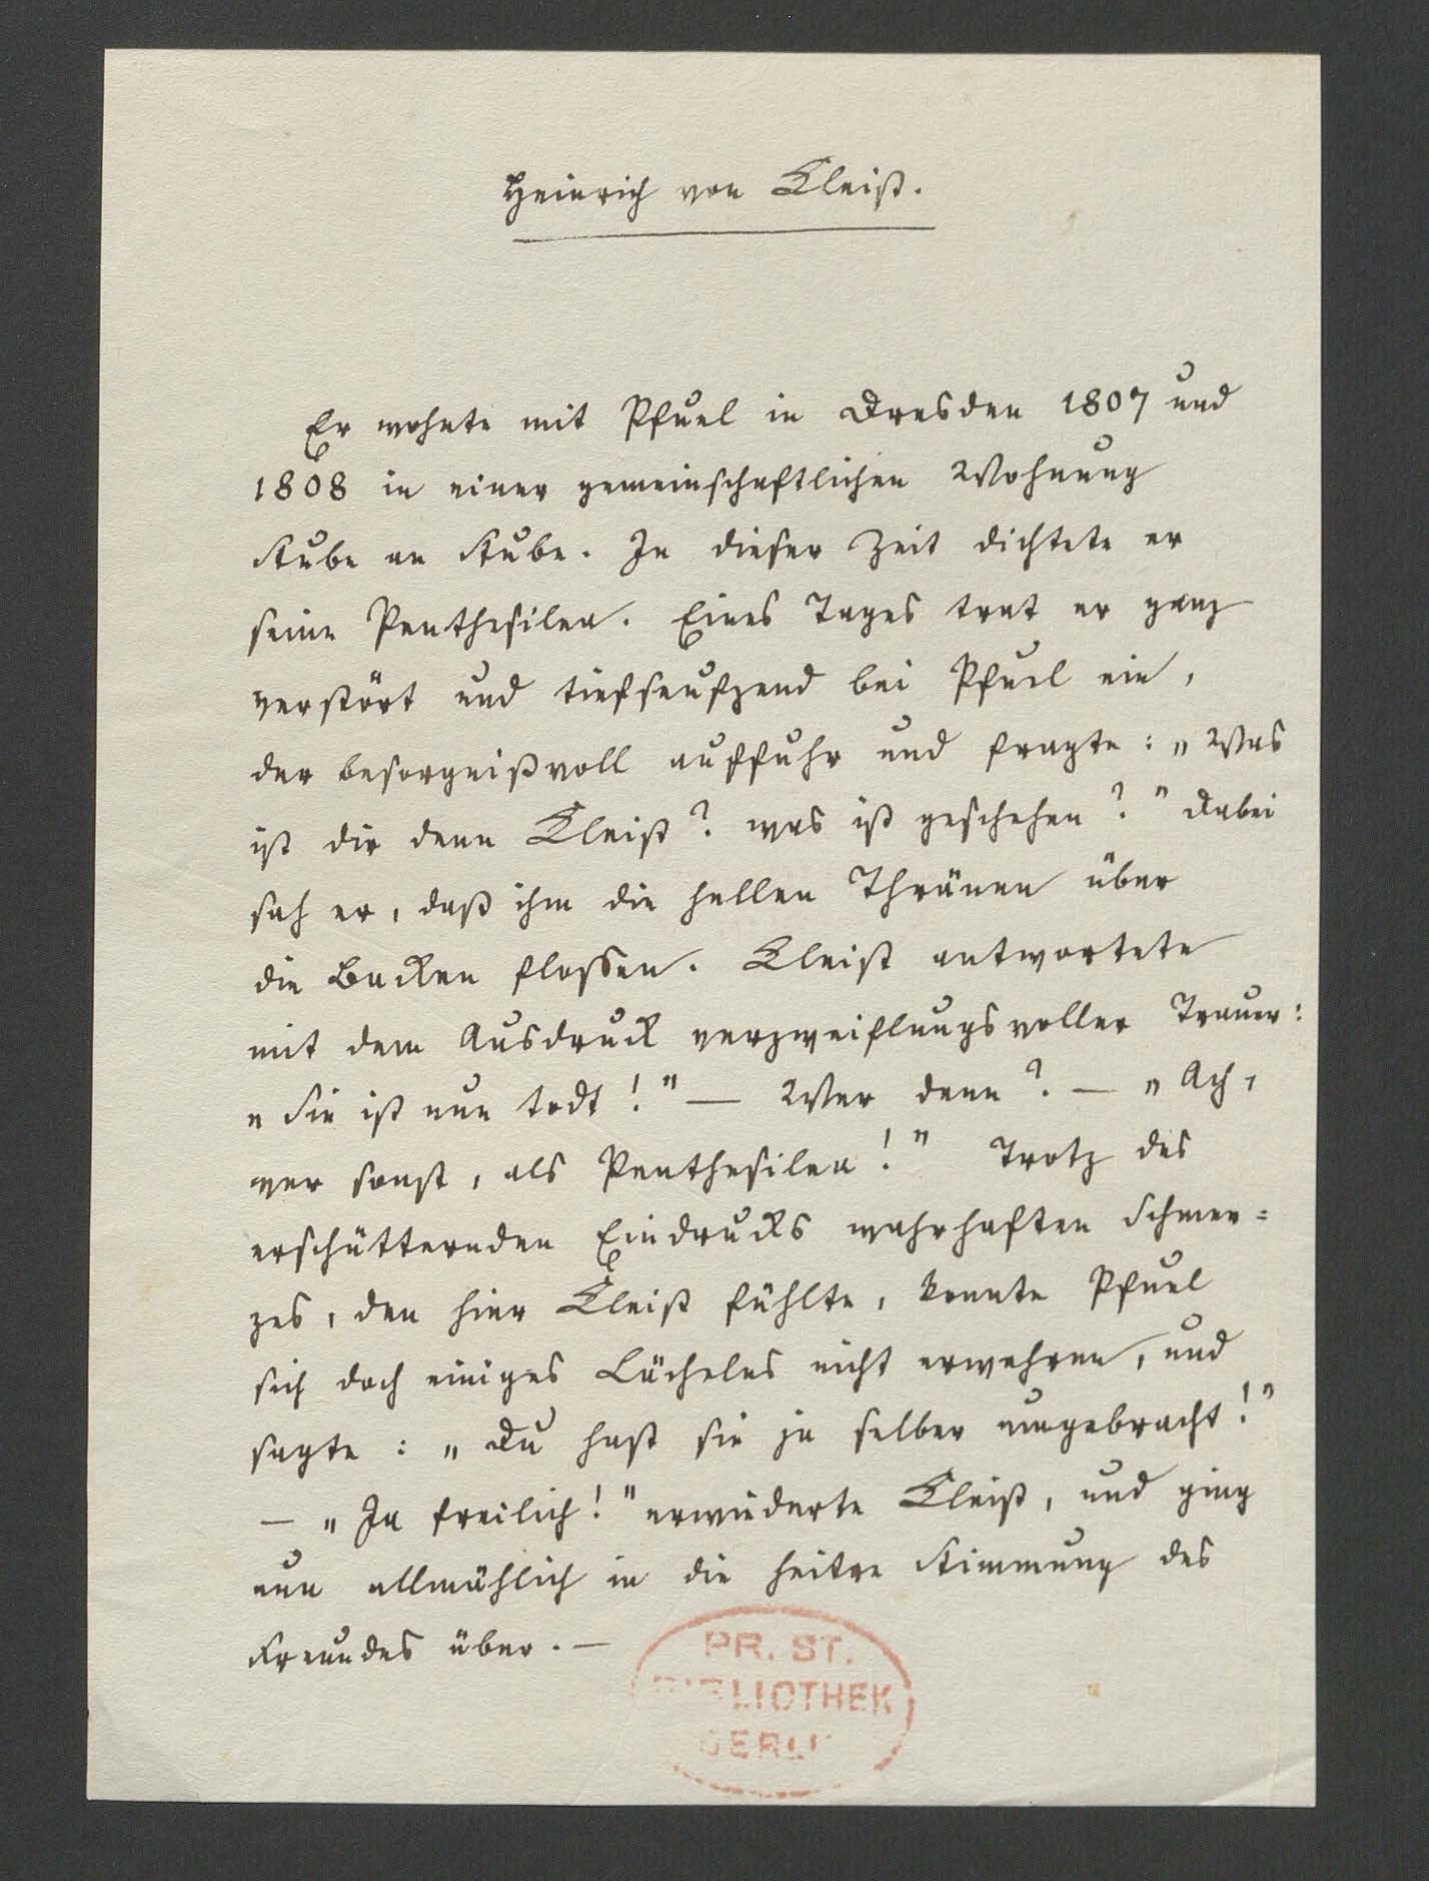 Heinrich von Kleist.
Er wohnte mit Pfuel in Dresden 1807 und
1808 in einer gemeinschaftlichen Wohnung
Stube an Stube. In dieser Zeit dichtete er
seine Penthesilea. Eines Tages trat er ganz
verstört und tiefseufzend bei Pfuel ein,
der besorgnißvoll auffuhr und fragte: „Was
ist dir denn Kleist? was ist geschehen?" Dabei
sah er, daß ihm die hellen Thränen über
die Backen flossen. Kleist antwortete
mit dem Ausdruck verzweiflungsvoller Trauer:
„Sie ist nun todt!" — Wer denn? — „Ach,
wer sonst, als Penthesilea!" Trotz des
erschütternden Eindrucks wahrhaften Schmer=
zes, den hier Kleist fühlte, konnte Pfuel
sich doch einiges Lächelns nicht erwehren, und
sagte: „Du hast sie ja selber umgebracht!"
— „Ja freilich!" erwiederte Kleist, und ging
nun allmählich in die heitre Stimmung des
Freundes über. —
PR. ST.
BIBLIOTHEK
BERLIN